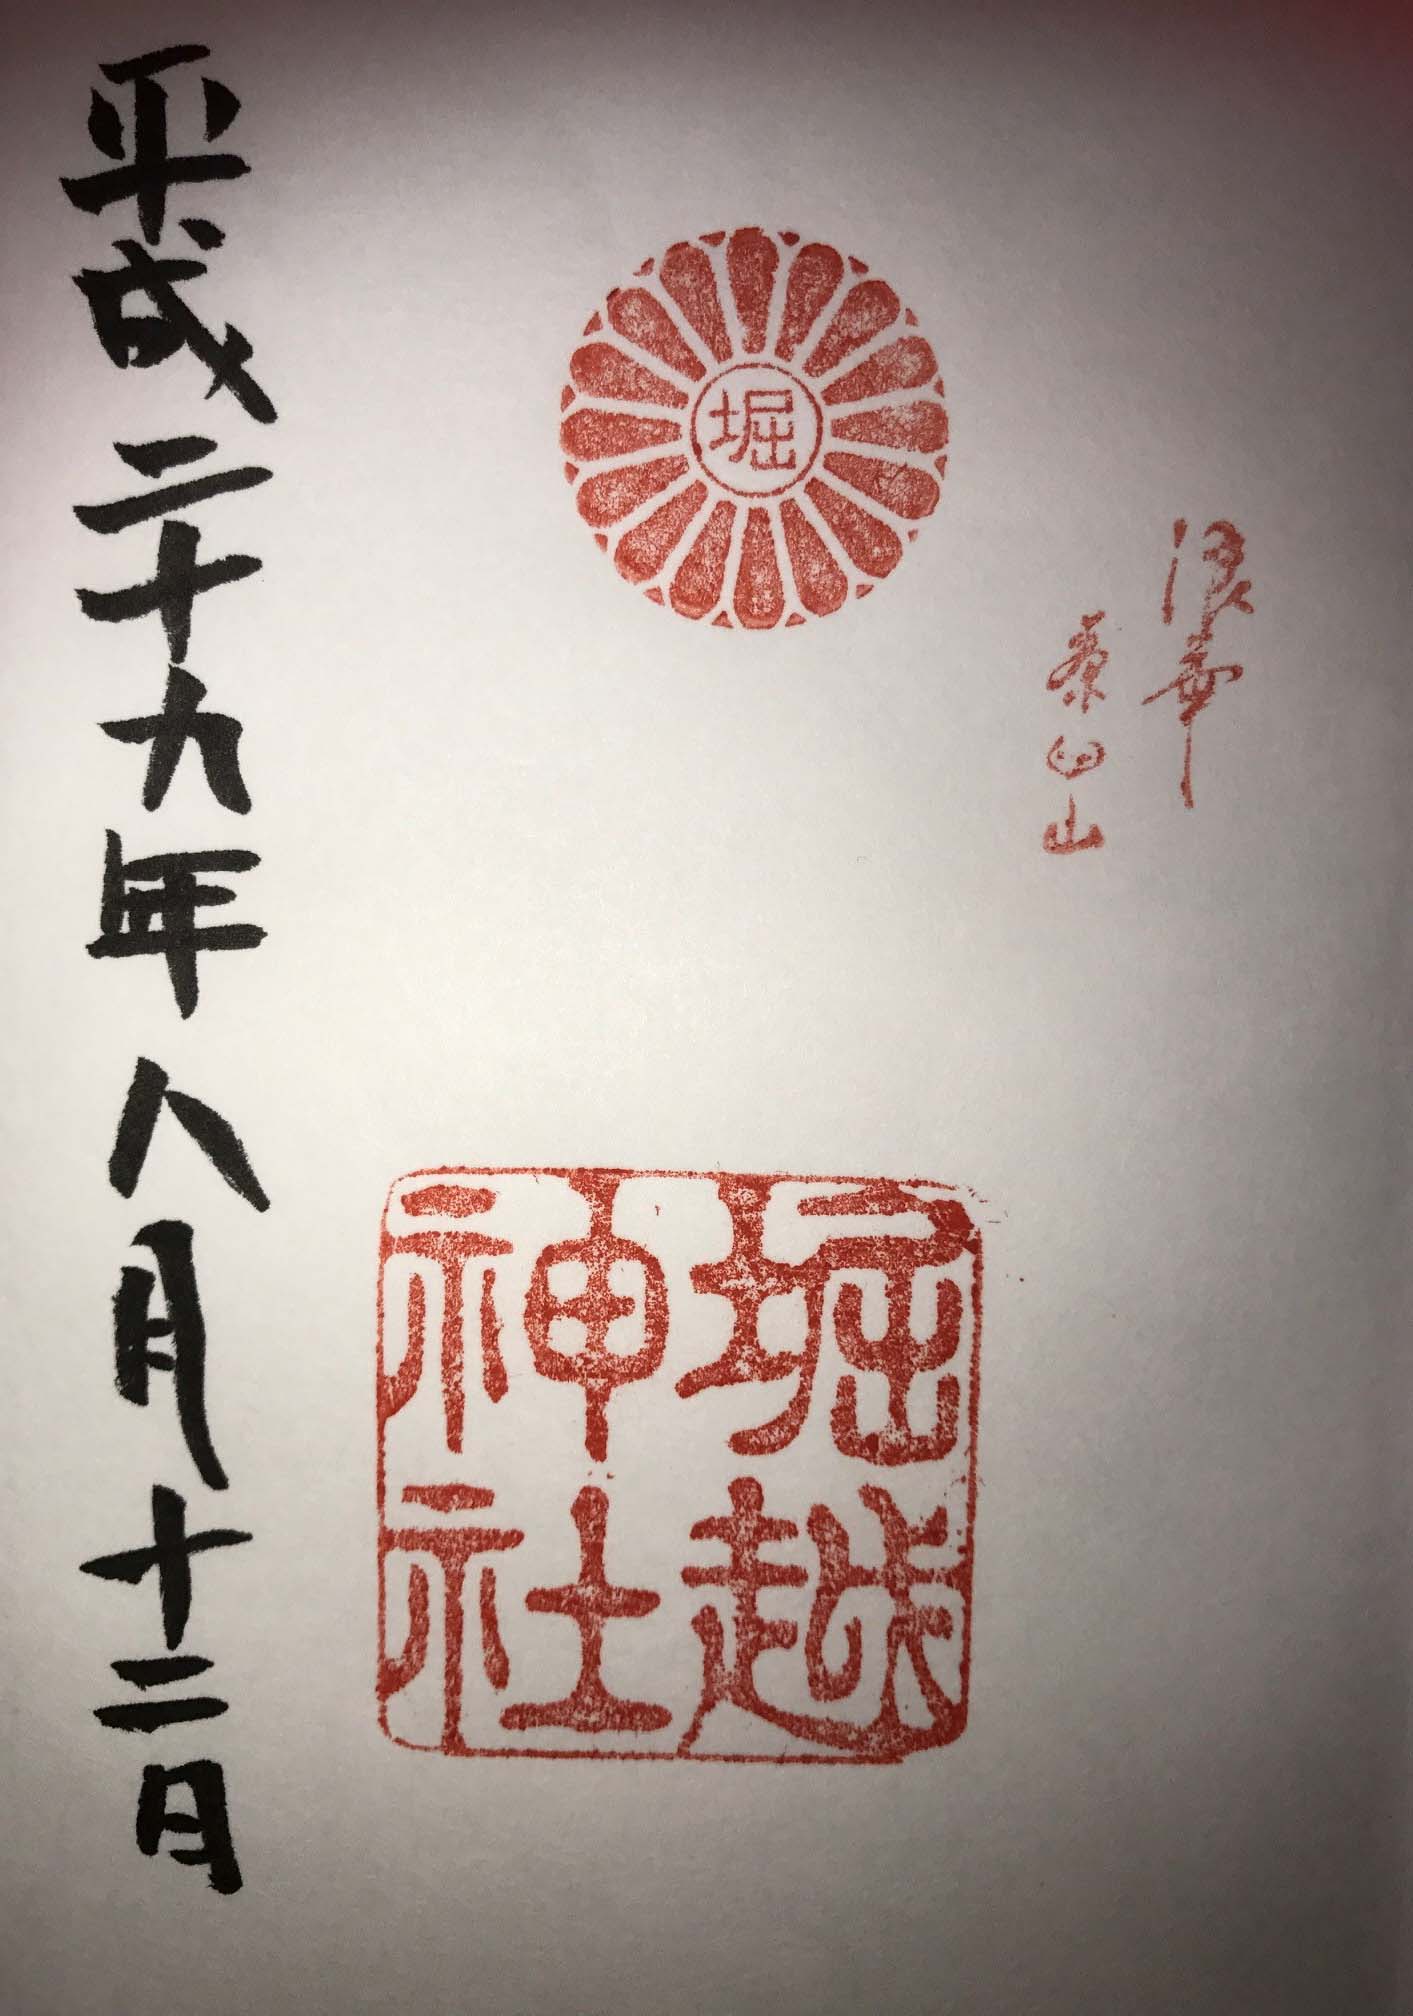 浪華
茶臼山
堀
堀越
神社
平成二十九年八月十二日